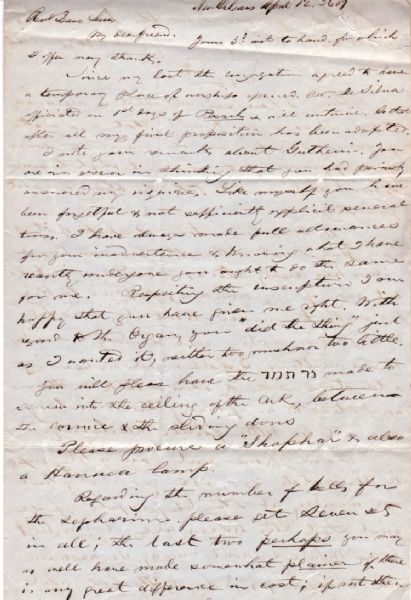 New Orleans April 12. 2617
Revd Isaac Leeser
My dear friend. Yours 3d inst to hand, for which
I offer many thanks.
Since my last the congregation agreed to have
a temporary place of worship opened. Rev. De Silva
officiated on 1st days of Pesach & will continue.
after all my first proposition has been adopted
I note your remarks about Gutheim. You
are in error in thinking that you had
answered my inquiries. Like myself you have
been forgetful & not sufficiently explicit several
times. I have always made full allowances
for your inadvertence & knowing what I have
recently undergone you ought to do the same
for me. Respecting the inscription I am
happy that you have given me right. With
regard to the Organ, you "did the thing" just
as I wanted it, neither too much nor too little.
You will please have the נר תמד made to
screw into the ceiling of the Ark, between
the cornice & the sliding doors
Please procure a "Shophar" & also
a Hanuca lamp
Regarding the number of bells for
the sepharim please get seven sets
in all; the last two perhaps you may
as well have made somewhat plainer if there
is any great difference in cost; if not then